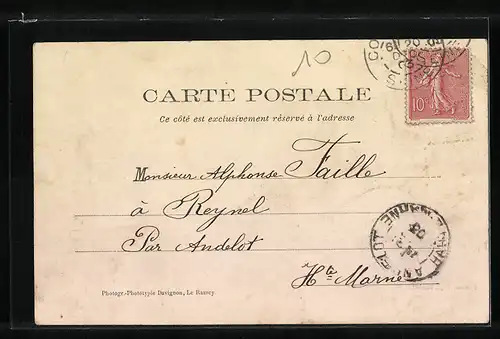 10
10c
CARTE POSTALE
Ce côté est exclusivement réservé à l'adresse
Monsieur Alphonse Faille
à Reynel
Par Andelot
Hte Marne
ANDELOT
HAUTE MARNE
Photogr.-Phototypie Davignon, Le Raincy.